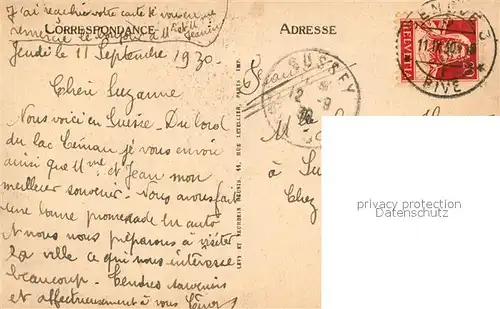 J'ai reçu hier votre carte et vous en
remercie
CORRESPONDANCE
ADRESSE
Jeudi le 11 Septembre 1930.
Chère Suzanne
Nous voici en Suisse. Du bord
du lac Léman je vous envoie
ainsi que Mme et Jean mon
meilleur souvenir. Nous avons fait
une bonne promenade en auto
et nous nous préparons à visiter
la ville ce qui nous intéresse
beaucoup. Tendres
et affectueusement à vous
LEVY ET NEURDEIN REUNIS, 44, RUE LETELLIER, PARIS IMP.
M
à Su
Chez
SUSSEY
12
9
HELVETIA
20
11.IX.30
RIVE
privacy protection
Datenschutz